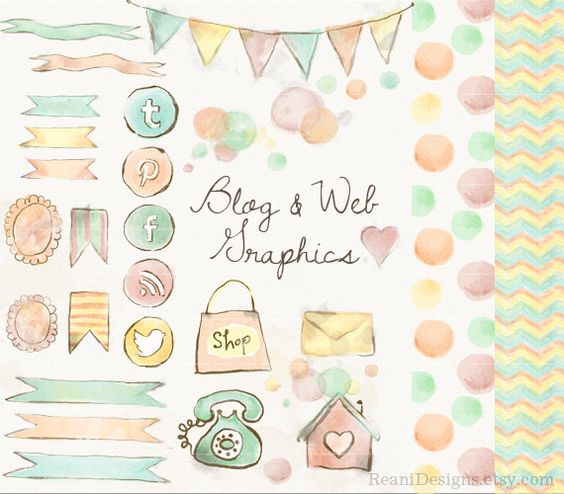 t
p
f
Blog & Web
Graphics
Shop
ReaniDesigns.etsy.com